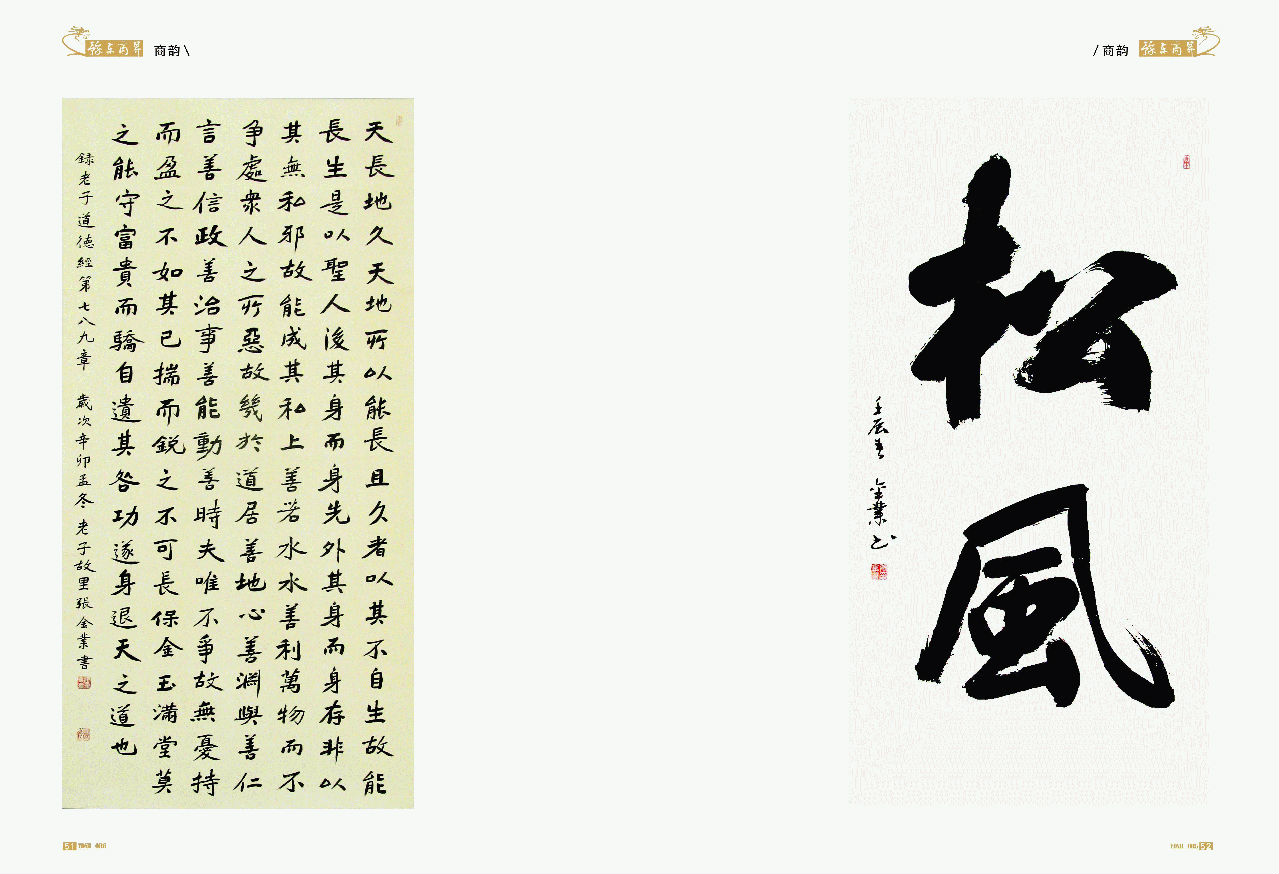 商韵\
/商韵
天長地久天地所以能長且久者以其不自生故能
長生是以聖人後其身而身先外其身而身存非以
其無私邪故能成其私上善若水水善利萬物而不
争處衆人之所惡故幾於道居善地心善淵與善仁
言善信政善治事善能動善時夫唯不爭故無憂持
而盈之不如其已揣而鋭之不可長保金玉滿堂莫
之能守富貴而驕自遺其咎功遂身退天之道也
録老子道德經第七八九章 歲次辛卯孟冬 老子故里張金業書
松風
壬辰春 金業书
51
52